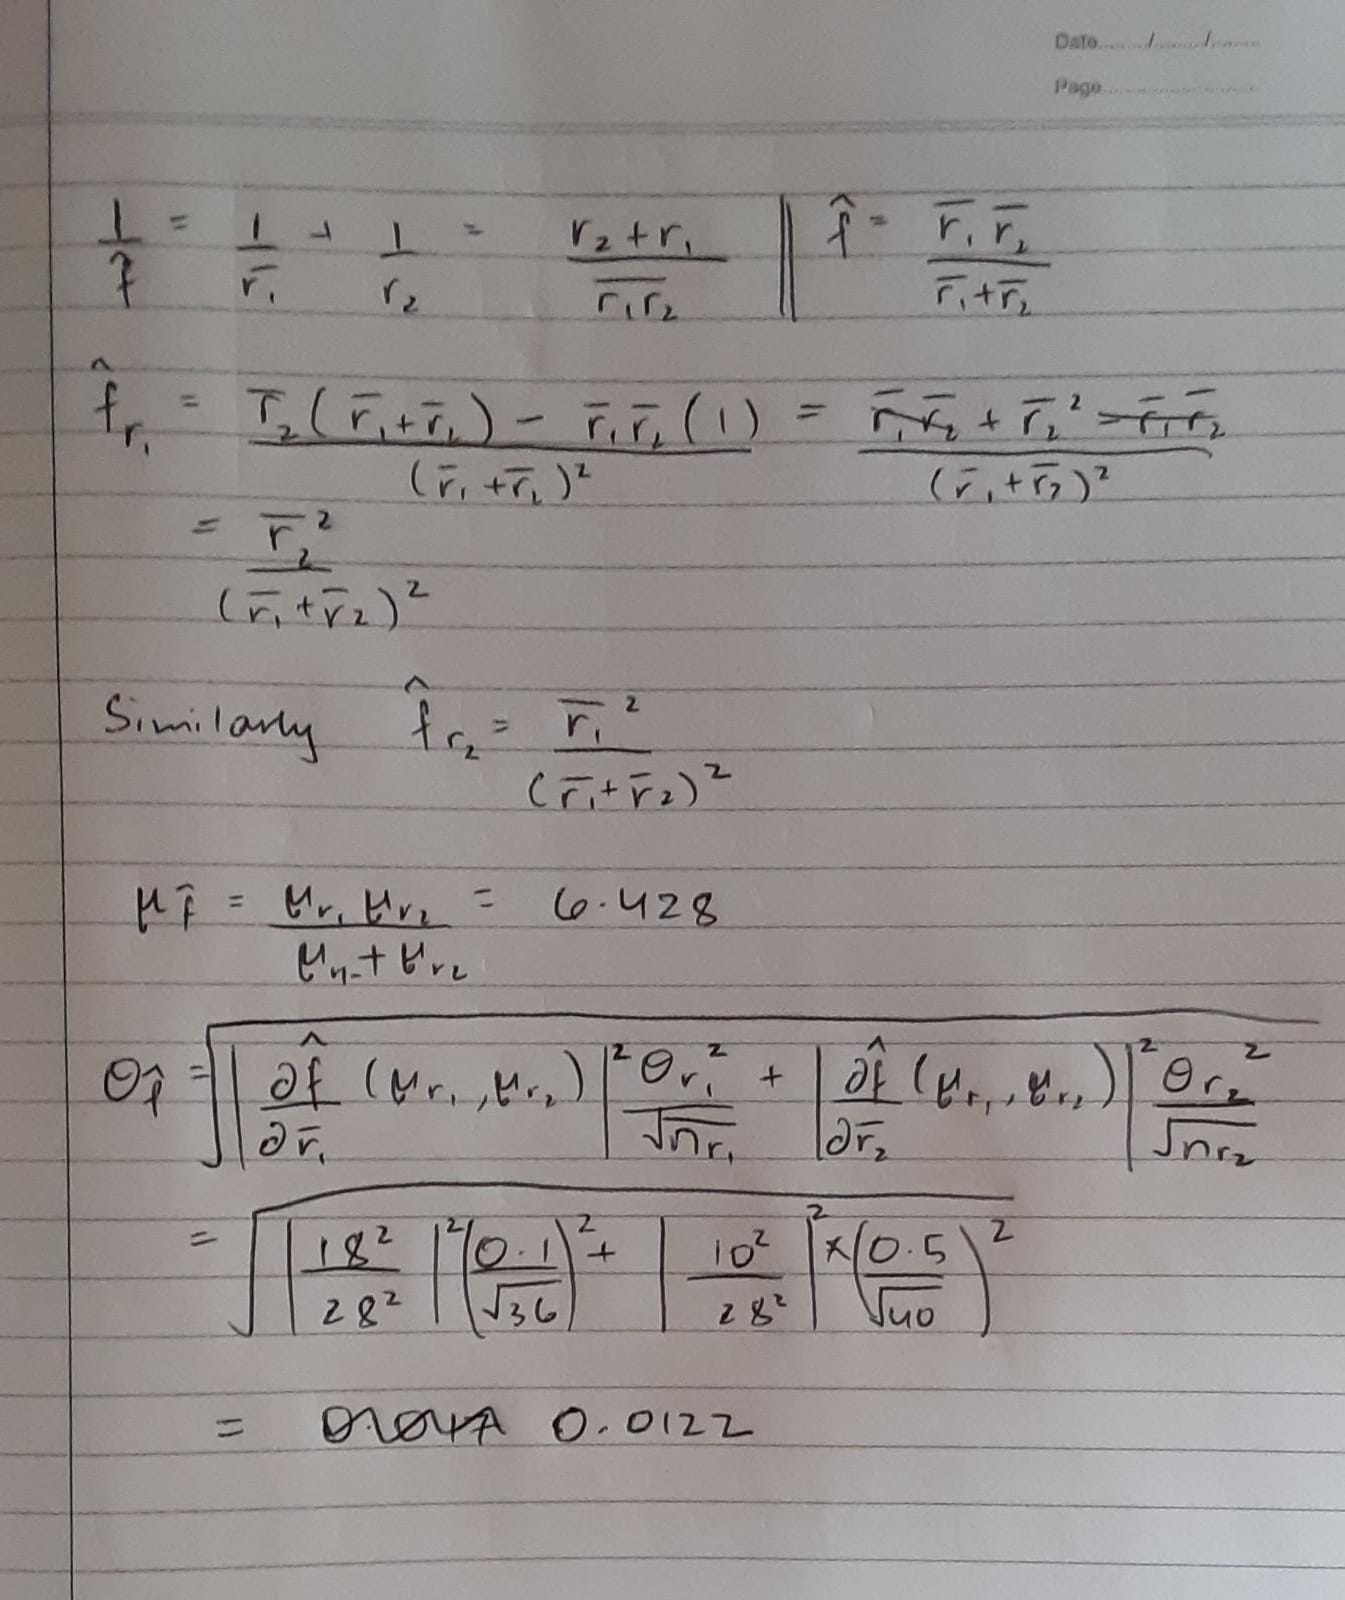 Date....../......./........
Page............................
1/f = 1/r̄₁ + 1/r₂ = (r₂+r₁)/(r̄₁r̄₂) || f̂ = (r̄₁ r̄₂)/(r̄₁+r̄₂)
f̂_r₁ = (r̄₂(r̄₁+r̄₂) - r̄₁r̄₂(1))/(r̄₁+r̄₂)² = (r̄₁r̄₂ + r̄₂² - r̄₁r̄₂)/(r̄₁+r̄₂)²
= r̄₂²/(r̄₁+r̄₂)²
Similarly f̂_r₂ = r̄₁²/(r̄₁+r̄₂)²
μ_f̂ = (μ_r₁ μ_r₂)/(μ_r₁ + μ_r₂) = 6.428
θ_f̂ = √(|∂f̂/∂r̄₁ (μ_r₁, μ_r₂)|² θ_r₁²/√n_r₁ + |∂f̂/∂r̄₂ (μ_r₁, μ_r₂)|² θ_r₂²/√n_r₂)
= √(|18²/28²|² (0.1/√36)² + |10²/28²|² × (0.5/√40)²)
= 0.0122